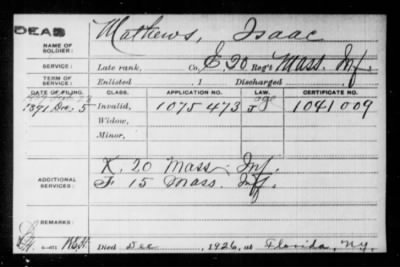 DEAD
Mathews, Isaac
NAME OF SOLDIER:
SERVICE: Late rank, Co. E, 20 Reg't Mass. Inf.
TERM OF SERVICE: Enlisted , 1 Discharged
DATE OF FILING. CLASS. APPLICATION NO. LAW. CERTIFICATE NO.
1891 Dec. 5 Invalid, 1075473 1041009
Widow,
Minor,
ADDITIONAL SERVICES: K. 20 Mass. Inf.
F 15 Mass. Inf.
REMARKS:
Died Dec , 1926, at Florida, N.Y.